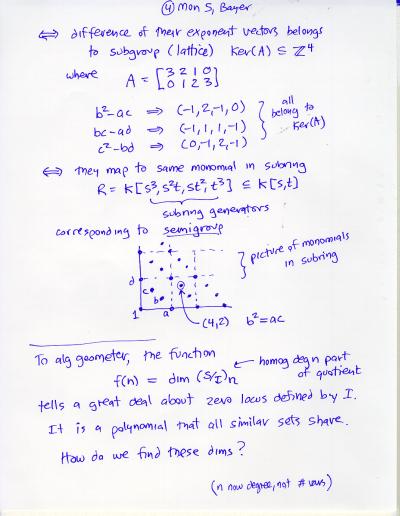 ④ Mon S, Bayer
⇔ difference of their exponent vectors belongs
to subgroup (lattice) Ker(A) ⊆ ℤ⁴
where A = [3 2 1 0
0 1 2 3]
b²-ac ⇒ (-1,2,-1,0)
bc-ad ⇒ (-1,1,1,-1)
c²-bd ⇒ (0,-1,2,-1)
} all
belong to
Ker(A)
⇔ they map to same monomial in subring
R = K[s³, s²t, st², t³] ⊆ K[s,t]
subring generators
corresponding to semigroup
d
c
b
1
a
} picture of monomials
in subring
(4,2) b²=ac
To alg geometer, the function
f(n) = dim (S/I)n
← homog deg n part
of quotient
tells a great deal about zero locus defined by I.
It is a polynomial that all similar sets share.
How do we find these dims?
(n now degree, not # vars)